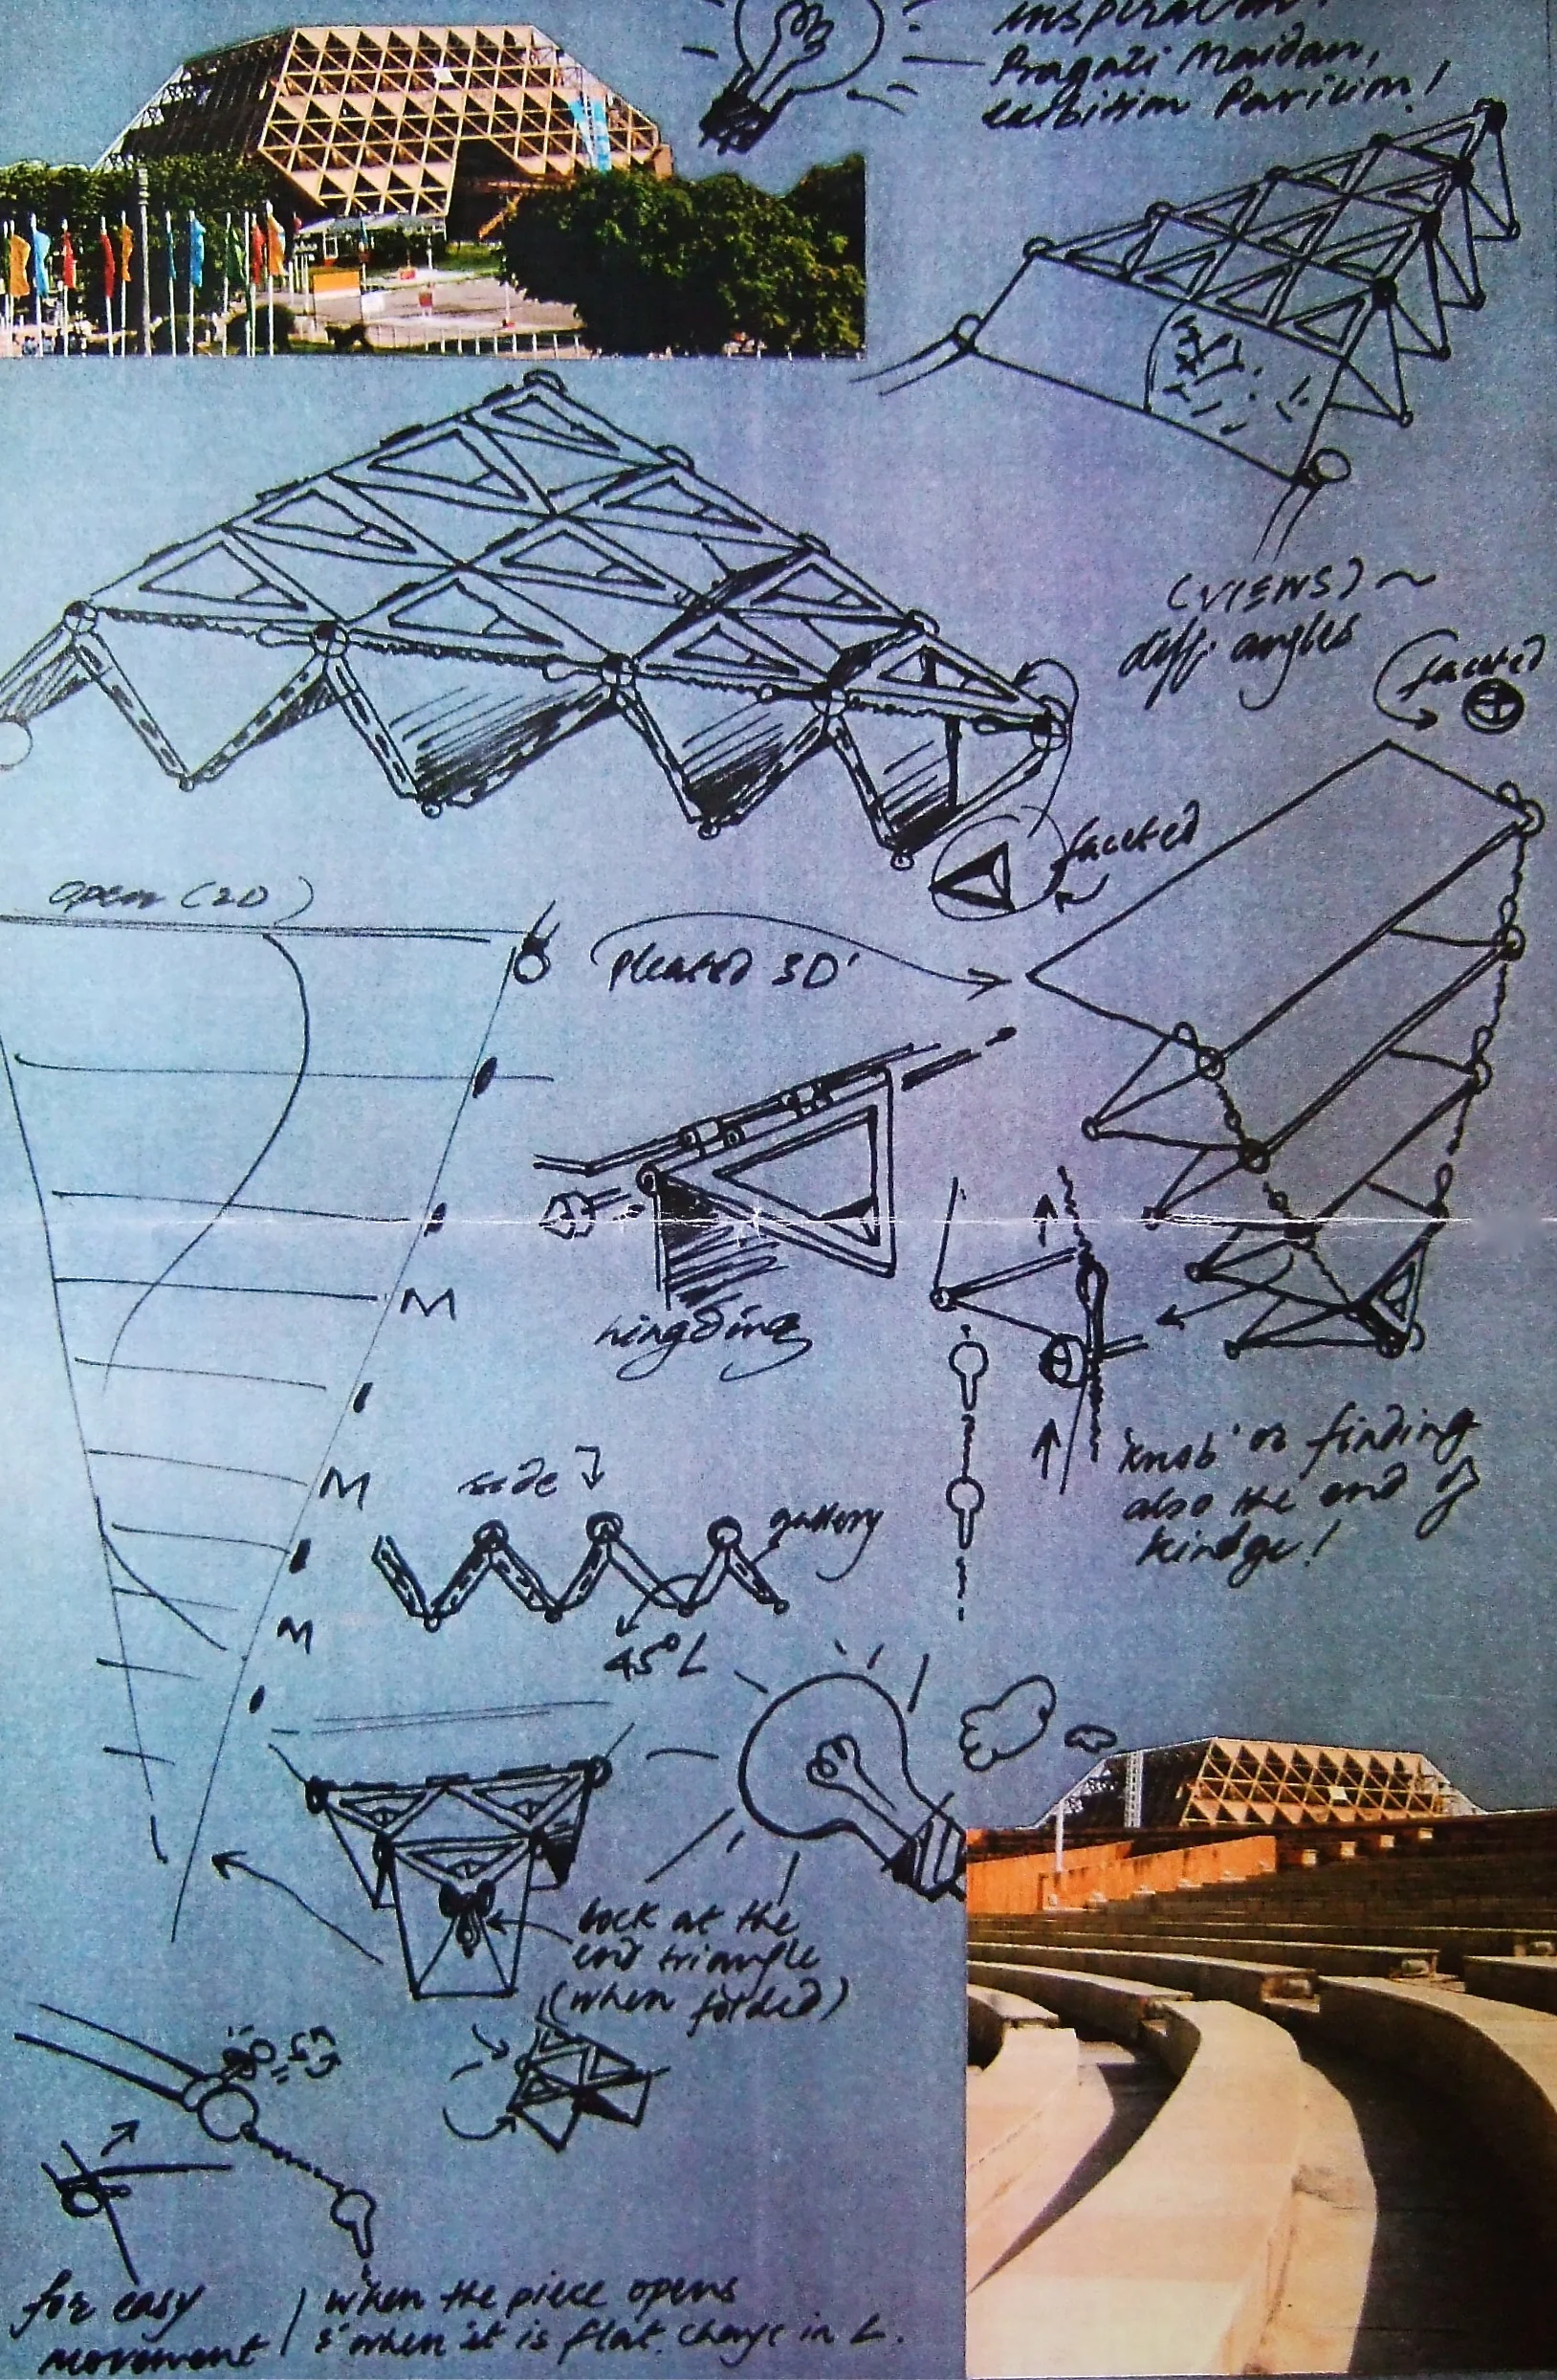 inspiration!
Pragati Maidan,
exibition Pavilion!
(VIEWS) ~
diff. angles
faceted
faceted
open (2D)
Pleated 3D'
hingding
M
'knob' or finding
also the end of
hindge!
M
side
gallery
45° L
M
lock at the
end triangle
(when folded)
for easy
movement
when the piece opens
& when it is flat. change in L.